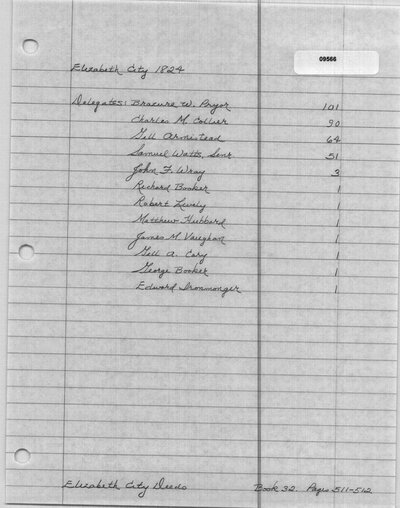 09566
Elizabeth City 1824
Delegates: Brazure W. Pryor 101
Charles M. Collier 90
Gill Armistead 64
Samuel Watts, Senr. 51
John F. Wray 3
Richard Booker 1
Robert Lively 1
Matthew Hubberd 1
James M Vaughan 1
Gill A. Cary 1
George Booker 1
Edward Ironmonger 1
Elizabeth City Deeds Book 32. Pages 511-512